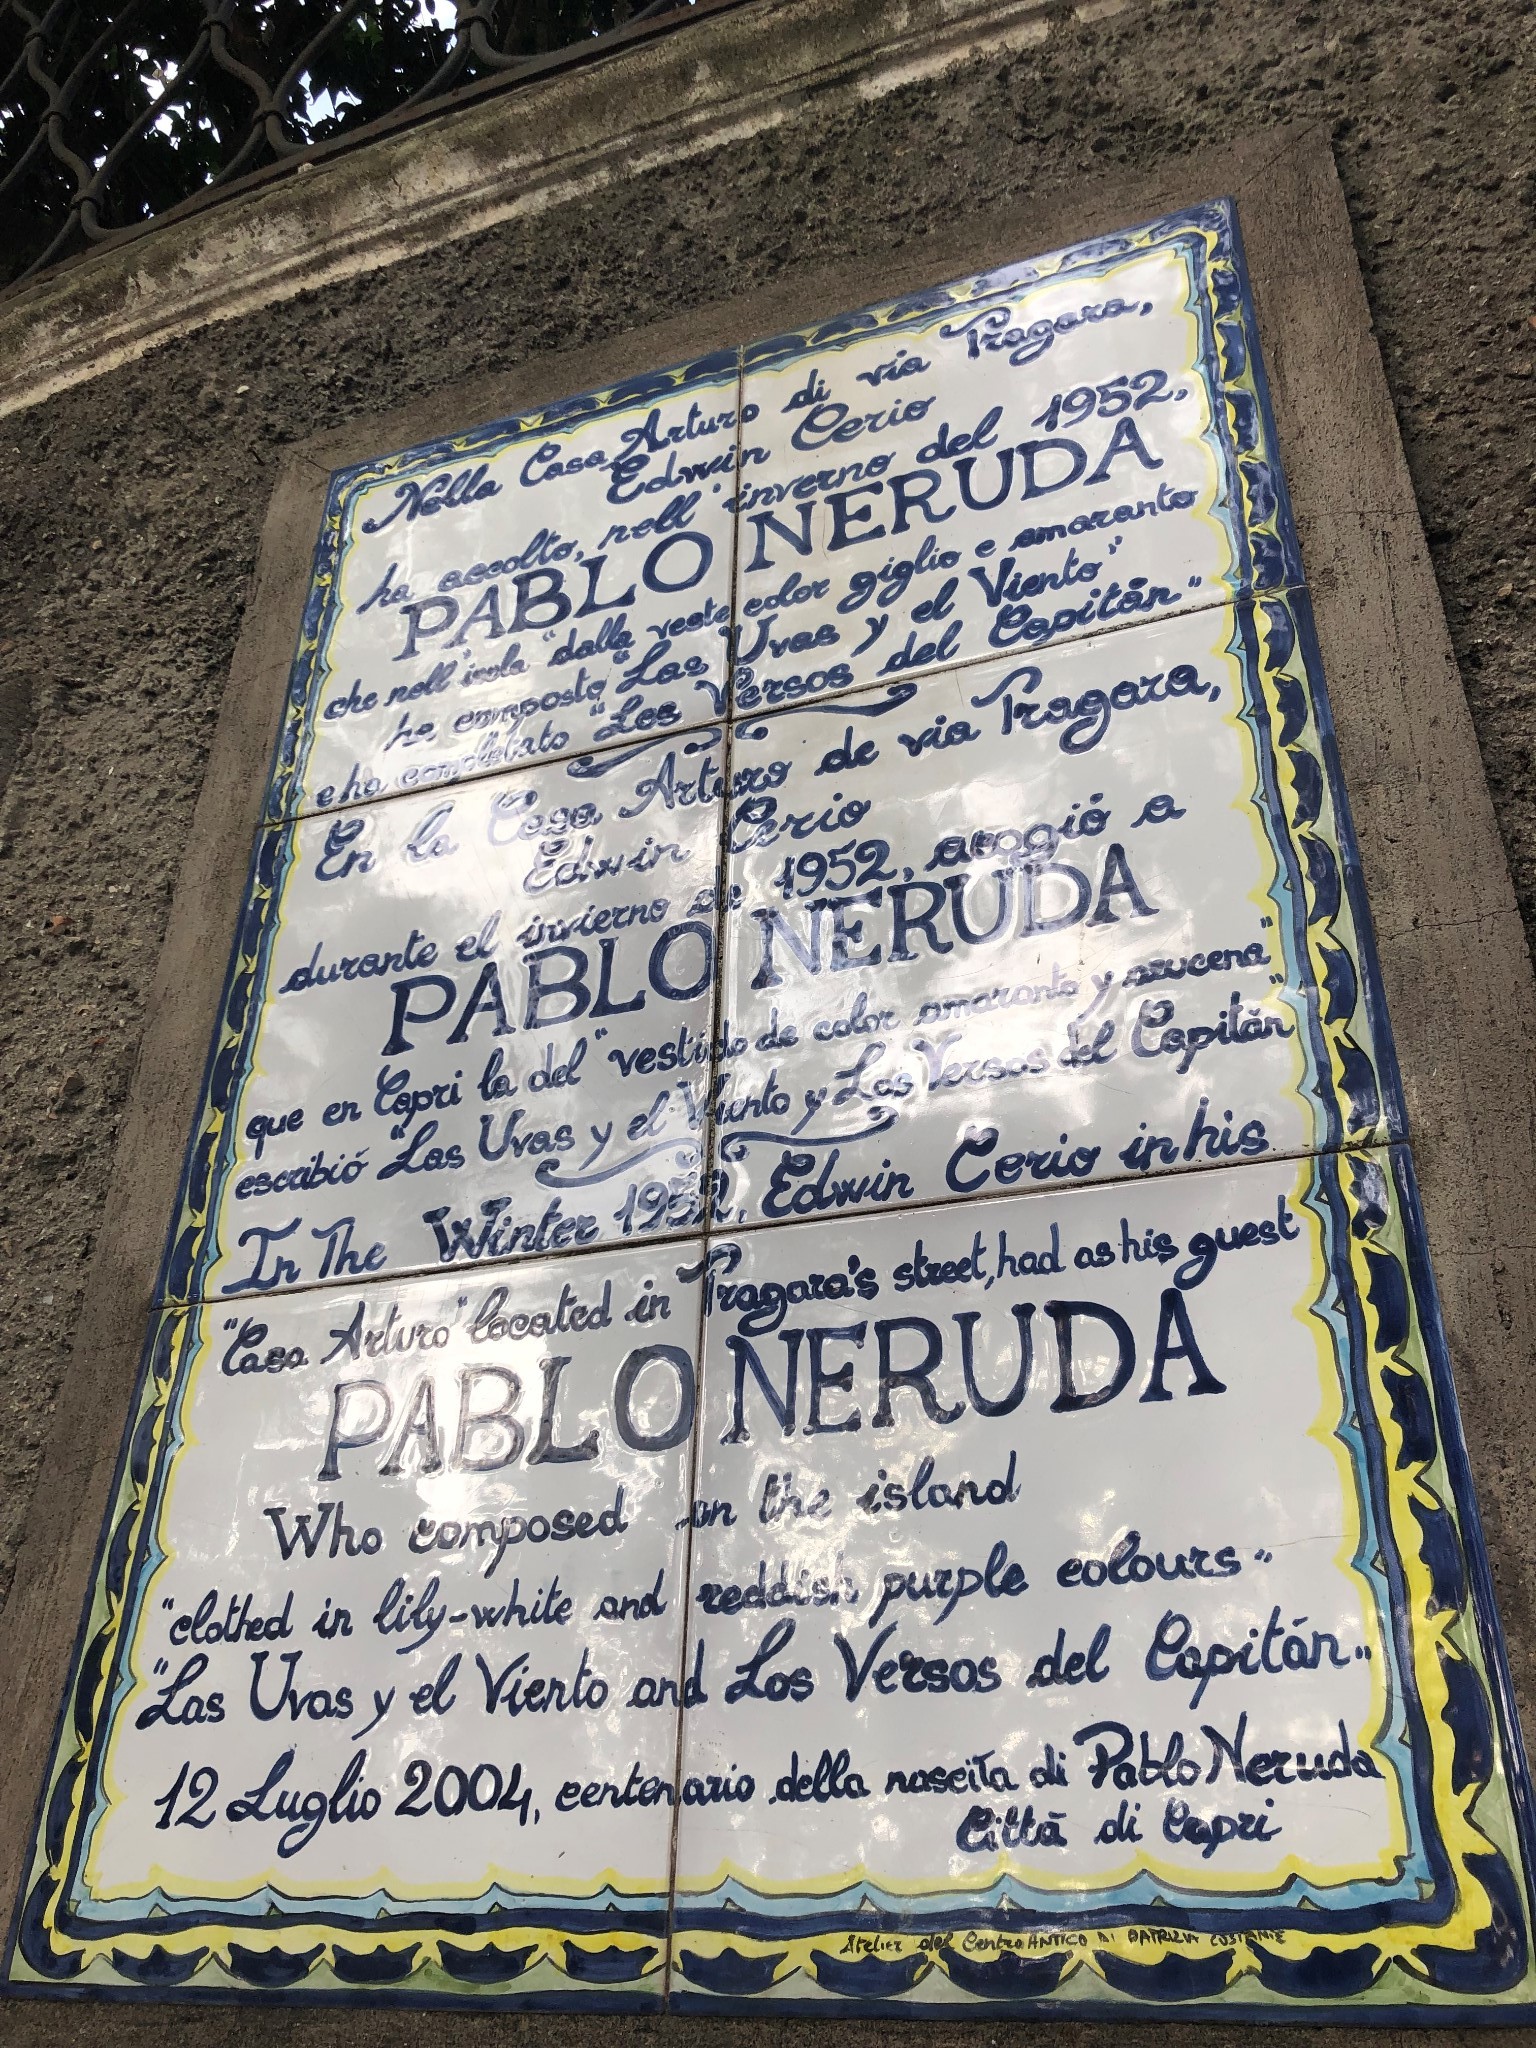 Nella Casa Arturo di via Tragara,
Edwin Cerio
ha accolto, nell'inverno del 1952,
PABLO NERUDA
che nell'isola "dalla veste color giglio e amaranto
ha composto "Las Uvas y el Viento"
e ha completato "Los Versos del Capitán"
En la Casa Arturo de via Tragara,
Edwin Cerio
durante el invierno de 1952, acogió a
PABLO NERUDA
que en Capri la del "vestido de color amaranto y azucena"
escribió "Las Uvas y el Viento y Los Versos del Capitán"
In The Winter 1952, Edwin Cerio in his
"Casa Arturo" located in Tragara's street, had as his guest
PABLO NERUDA
Who composed on the island
"clothed in lily-white and reddish purple colours"
"Las Uvas y el Viento and Los Versos del Capitán"
12 Luglio 2004, centenario della nascita di Pablo Neruda
Città di Capri
Atelier del Centro ANTICO DI PATRIZIA COSTANTE